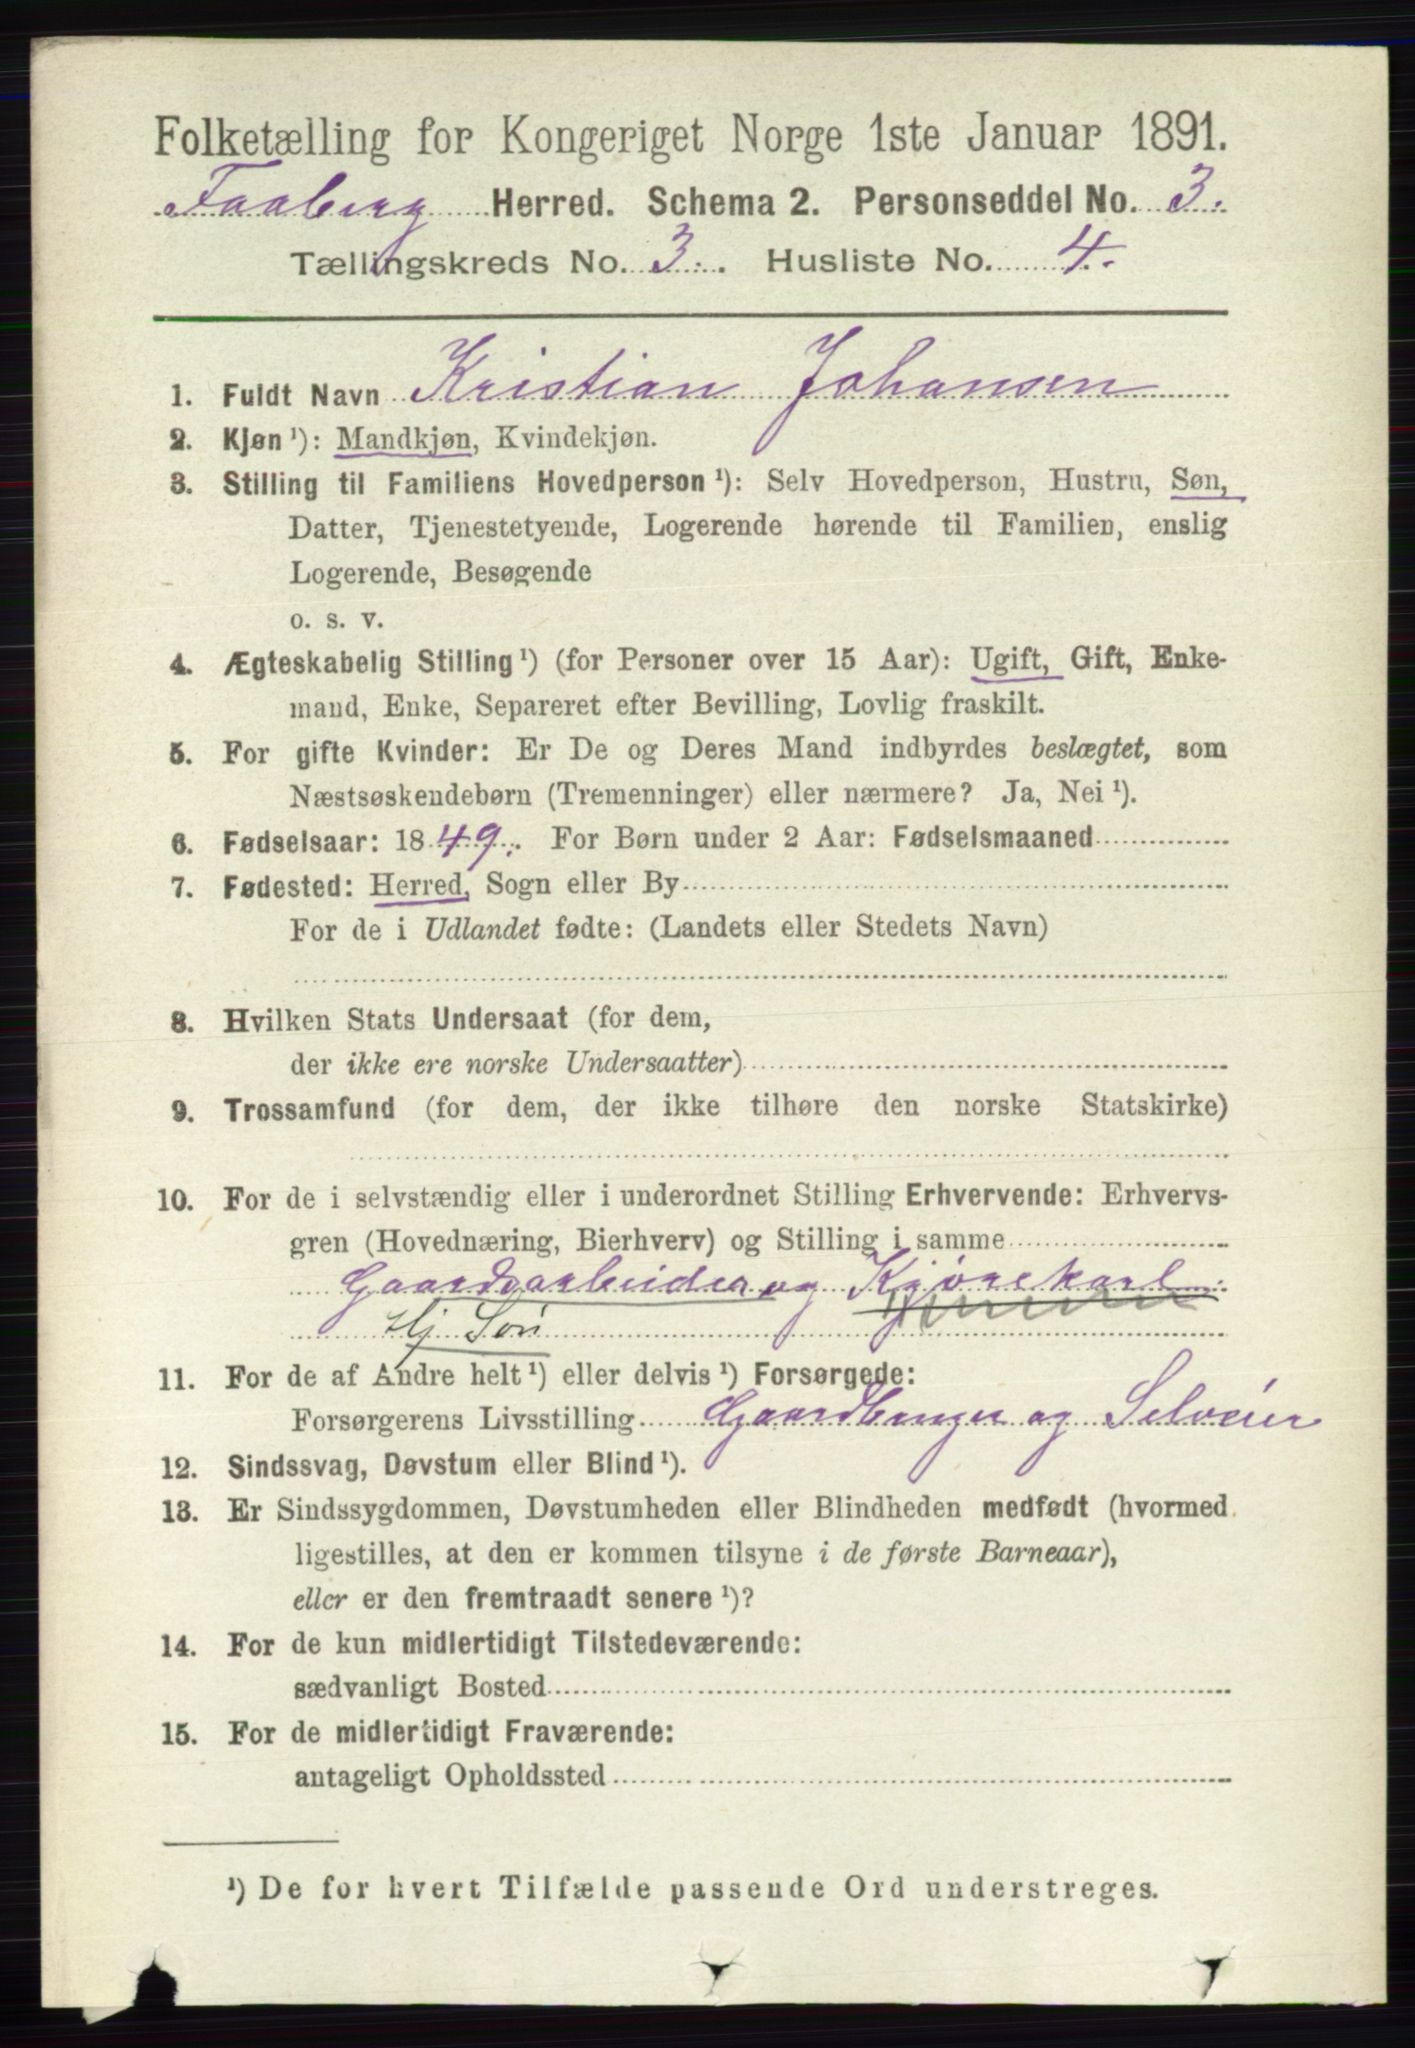 Folketælling for Kongeriget Norge 1ste Januar 1891.
Faaberg Herred. Schema 2. Personseddel No. 3.
Tællingskreds No. 3. Husliste No. 4.
1. Fuldt Navn Kristian Johansen
2. Kjøn ¹): Mandkjøn, Kvindekjøn.
3. Stilling til Familiens Hovedperson ¹): Selv Hovedperson, Hustru, Søn,
Datter, Tjenestetyende, Logerende hørende til Familien, enslig
Logerende, Besøgende
o. s. v.
4. Ægteskabelig Stilling ¹) (for Personer over 15 Aar): Ugift, Gift, Enke-
mand, Enke, Separeret efter Bevilling, Lovlig fraskilt.
5. For gifte Kvinder: Er De og Deres Mand indbyrdes beslægtet, som
Næstsøskendebørn (Tremenninger) eller nærmere? Ja, Nei ¹).
6. Fødselsaar: 1849. For Børn under 2 Aar: Fødselsmaaned
7. Fødested: Herred, Sogn eller By
For de i Udlandet fødte: (Landets eller Stedets Navn)
8. Hvilken Stats Undersaat (for dem,
der ikke ere norske Undersaatter)
9. Trossamfund (for dem, der ikke tilhøre den norske Statskirke)
10. For de i selvstændig eller i underordnet Stilling Erhvervende: Erhvervs-
gren (Hovednæring, Bierhverv) og Stilling i samme
Gaardsarbeider og Kjørekarl
Hj Søn
11. For de af Andre helt ¹) eller delvis ¹) Forsørgede:
Forsørgerens Livsstilling Gaardbruger og Selveier
12. Sindssvag, Døvstum eller Blind ¹).
13. Er Sindssygdommen, Døvstumheden eller Blindheden medfødt (hvormed
ligestilles, at den er kommen tilsyne i de første Barneaar),
eller er den fremtraadt senere ¹)?
14. For de kun midlertidigt Tilstedeværende:
sædvanligt Bosted
15. For de midlertidigt Fraværende:
antageligt Opholdssted
¹) De for hvert Tilfælde passende Ord understreges.